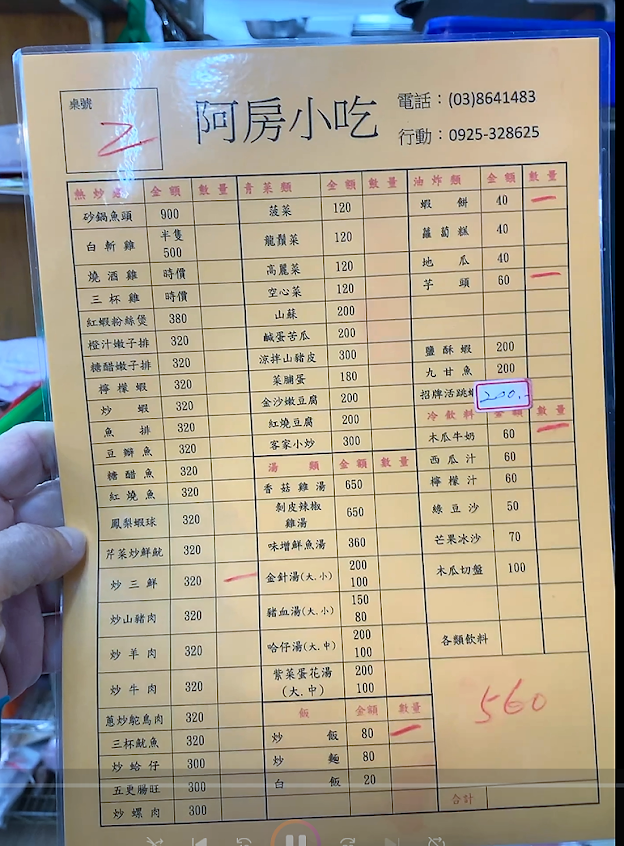 桌號
2
阿房小吃
電話：(03)8641483
行動：0925-328625
熱炒類 金額 數量
砂鍋魚頭 900
白斬雞 半隻 500
燒酒雞 時價
三杯雞 時價
紅蝦粉絲煲 380
橙汁嫩子排 320
糖醋嫩子排 320
檸檬蝦 320
炒蝦 320
魚排 320
豆瓣魚 320
糖醋魚 320
紅燒魚 320
鳳梨蝦球 320
芹菜炒鮮魷 320
炒三鮮 320 一
炒山豬肉 320
炒羊肉 320
炒牛肉 320
蔥炒鴕鳥肉 320
三杯魷魚 320
炒蛤仔 300
五更腸旺 300
炒螺肉 300
青菜類 金額 數量
菠菜 120
龍鬚菜 120
高麗菜 120
空心菜 120
山蘇 200
鹹蛋苦瓜 200
涼拌山豬皮 300
菜脯蛋 180
金沙嫩豆腐 200
紅燒豆腐 200
客家小炒 300
湯類 金額 數量
香菇雞湯 650
剝皮辣椒雞湯 650
味增鮮魚湯 360
金針湯(大.小) 200 100
豬血湯(大.小) 150 80
哈仔湯(大.中) 200 100
紫菜蛋花湯(大.中) 200 100
飯 金額 數量
炒飯 80 一
炒麵 80
白飯 20
油炸類 金額 數量
蝦餅 40 一
蘿蔔糕 40
地瓜 40
芋頭 60 一
鹽酥蝦 200
九甘魚 200
招牌活跳 200.-
冷飲料 金額 數量
木瓜牛奶 60 一
西瓜汁 60
檸檬汁 60
綠豆沙 50
芒果冰沙 70
木瓜切盤 100
各類飲料
560
合計